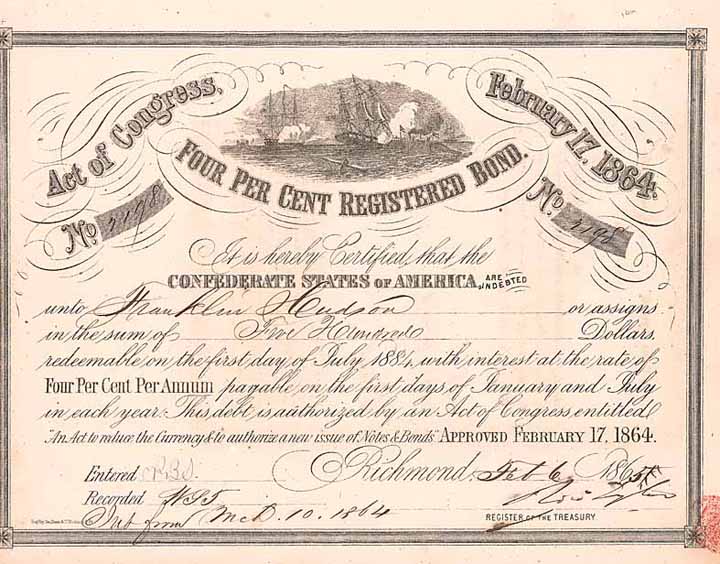 Act of Congress,
February 17, 1864.
FOUR PER CENT REGISTERED BOND.
No. 2198
No. 2198
It is hereby Certified, that the
CONFEDERATE STATES OF AMERICA, ARE INDEBTED
unto Franklin Hudson or assigns
in the sum of Five Hundred Dollars.
redeemable on the first day of July 1884, with interest at the rate of
Four Per Cent Per Annum payable on the first days of January and July
in each year. This debt is authorized by an Act of Congress, entitled
"An Act to reduce the Currency & to authorize a new issue of Notes & Bonds" APPROVED FEBRUARY 17, 1864.
Entered
Richmond, Feb 6 1865
Recorded
REGISTER OF THE TREASURY.
Int from 10. 1864